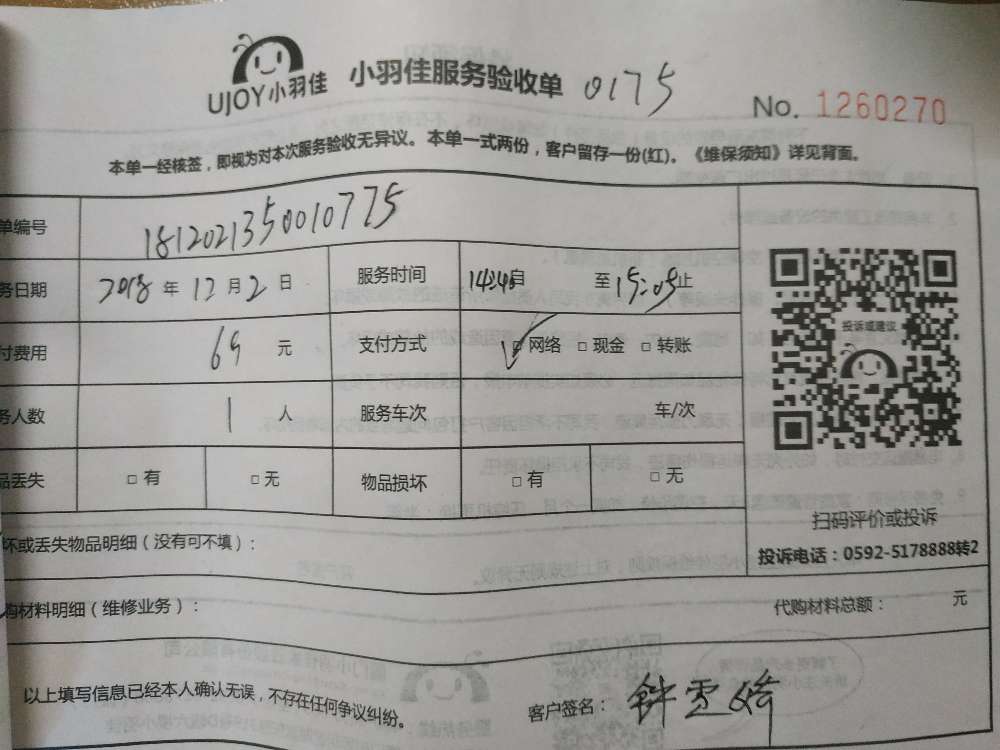 UJOY小羽佳 小羽佳服务验收单 0175
No. 1260270
本单一经核签，即视为对本次服务验收无异议。本单一式两份，客户留存一份(红)。《维保须知》详见背面。
单编号 1812021350010775
务日期 2018 年 12 月 2 日 服务时间 自 至 15:05 止
付费用 69 元 支付方式 ☑ 网络 □ 现金 □ 转账
务人数 1 人 服务车次 车/次
品丢失 □ 有 □ 无 物品损坏 □ 有 □ 无
投诉或建议
扫码评价或投诉
投诉电话：0592-5178888转2
坏或丢失物品明细（没有可不填）：
购材料明细（维修业务）： 代购材料总额： 元
以上填写信息已经本人确认无误，不存在任何争议纠纷。
客户签名：钟